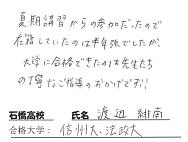 夏期講習からの参加だったので
在籍していたのは半年弱でしたが、
大学に合格できたのは先生たち
の丁寧なご指導のおかげです!!
石橋高校 氏名 渡辺 緋南
合格大学: 信州大、法政大